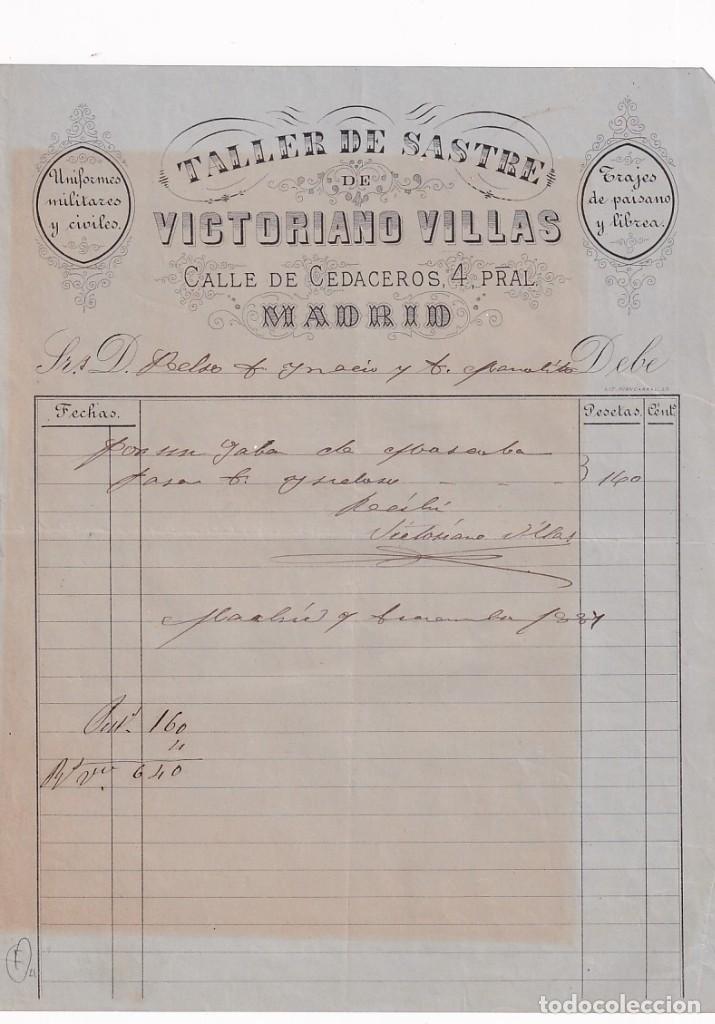 TALLER DE SASTRE
DE
VICTORIANO VILLAS
CALLE DE CEDACEROS, 4, PRAL.
MADRID
Uniformes
militares
y civiles.
Trajes
de paisano
y librea.
Srs D. Ignacio y Debe
Fechas. Pesetas. Cents
Por un de
160
Recibí
Victoriano Villas
Madrid 7
160
4
640
todocoleccion